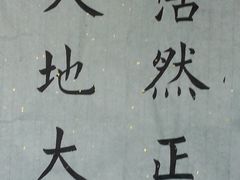 浩然正
地大